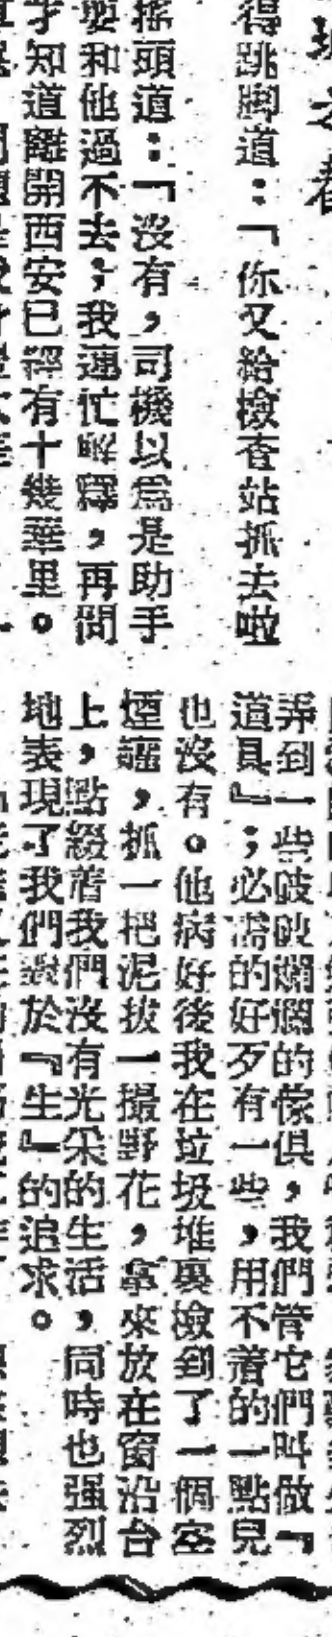 得跳脚道：「你又給檢查站抓去啦
搖頭道：「没有，司機以爲是助手
和他過不去；我連忙解釋，再問
才知道離開西安已經有十幾華里。
弄到一些破破爛爛的傢俱，我們管它們叫做『
道具』；必需的好歹有一些，用不着的一點兒
也沒有。他病好後我在垃圾堆裏檢到了一個空
煙罐，抓一把泥拔一撮野花，拿來放在窗沿台
上，點綴着我們沒有光采的生活，同時也强烈
地表現了我們對於『生』的追求。